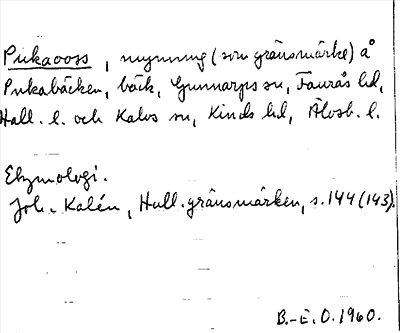 Pukaooss, mynning (som gränsmärke) å
Pukabäcken, bäck, Gunnarps sn, Faurås hd,
Hall. l. och Kalvs sn, Kinds hd, Älvsb. l.
Etymologi.
Joh. Kalén, Hall. gränsmärken, s. 144 (143).
B.-E. O. 1960.